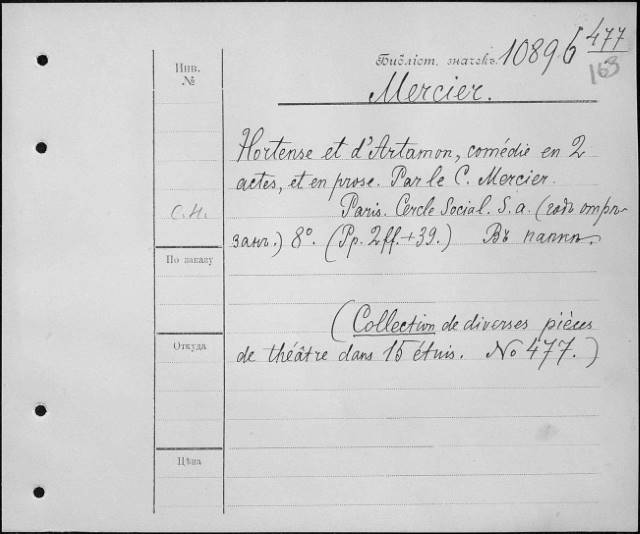 Инв.
№
Библіот. значекъ. 1089б 477
163
Mercier.
Hortense et d'Artamon, comédie en 2
actes, et en prose. Par le C. Mercier.
С.Н. Paris. Cercle Social. S. a. (годъ отрѣ-
занъ.) 8°. (Pp. 2ff. + 39.) Въ папкѣ.
По заказу
(Collection de diverses pièces
Откуда
de théâtre dans 15 étuis. No 477.)
Цѣна